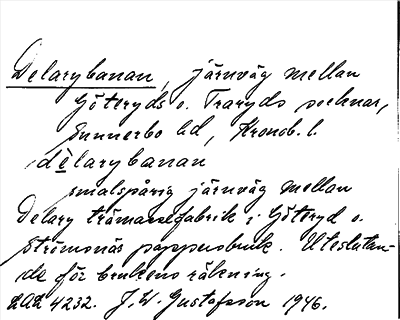 Delarybanan, järnväg mellan
Göteryds o. Traryds socknar,
Sunnerbo hd, Kronob. l.
dèlarybanan
smalspårig järnväg mellan
Delary trämassefabrik i Göteryd o.
Strömsnäs pappersbruk. Uteslutan-
de för brukens räkning.
ULA 4232. J. W. Gustafsson 1946.